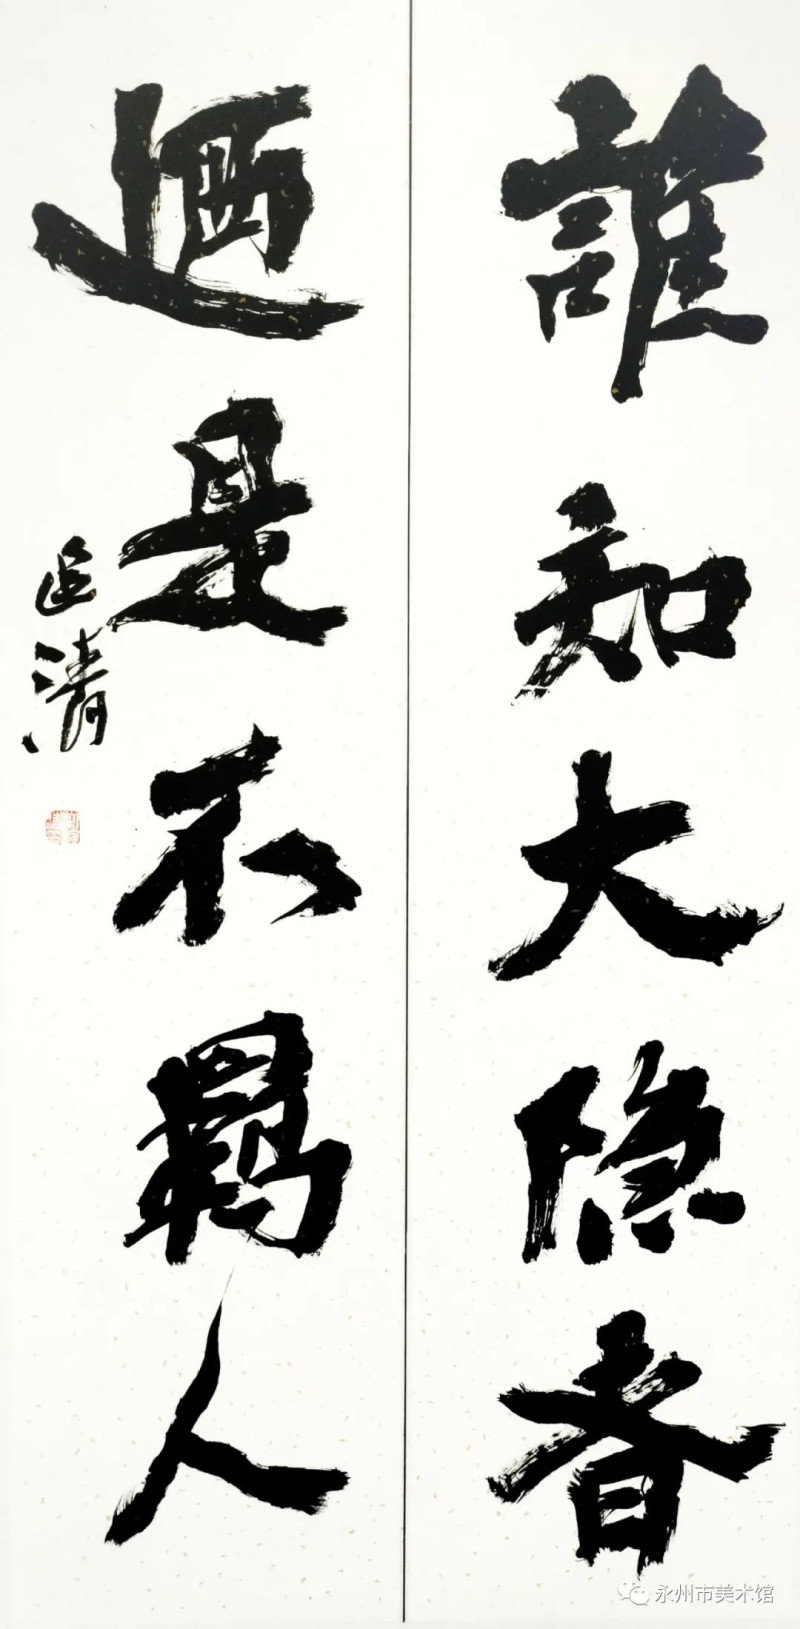 誰知大隐者
迺是不羁人
追清
永州市美术馆